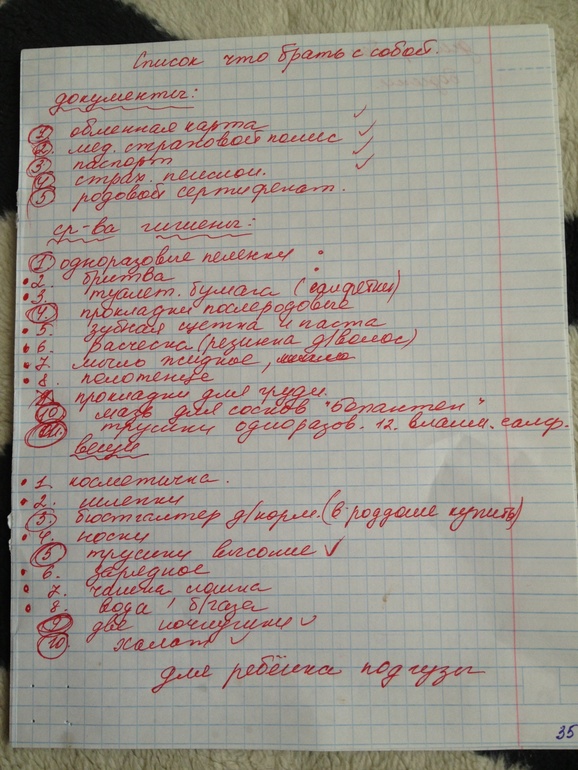 Список что брать с собой.
документы:
1 обменная карта
2. мед. страховой полис
3. паспорт
4. страх. пенсион.
5 родовой сертификат.
ср-ва гигиены:
1 одноразовые пеленки
2. бритва
3. туалет. бумага (салфетки)
4. прокладки послеродовые
5. зубная щетка и паста
6. Расческа (резинка д/волос)
7. мыло жидкое,
8. полотенце
9. прокладки для груди.
10 мазь для сосков "Бепантен"
11. трусики одноразов. 12. влажн. салф.
вещи
1. косметичка.
2. шлепки
3. бюстгалтер д/корм. (в роддоме купить)
4. носки
5 трусики высокие
6. зарядное
7. чашка ложка
8. вода б/газа
9 две ночнушки
10. халат
для ребёнка подгузы
35